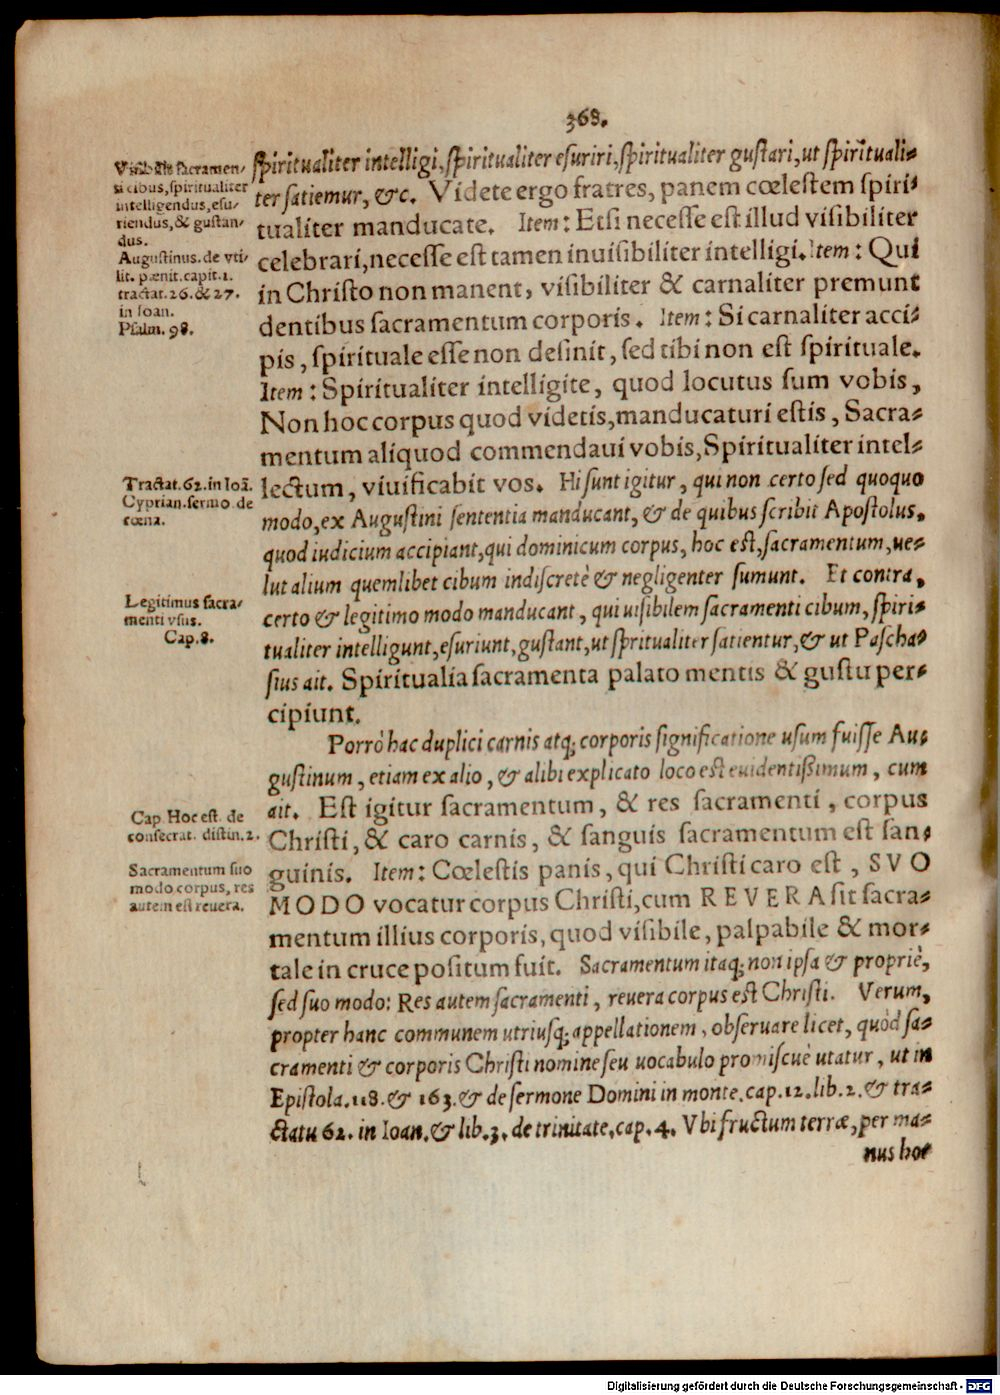 368.
Visibilis sacramen⸗
ti cibus, spiritualiter
intelligendus, esu⸗
riendus, & gustan⸗
dus.
Augustinus. de vti⸗
lit. pænit. capit. 1.
tractat. 26. & 27.
in Ioan.
Psalm. 98.
Tractat. 62. in Ioā.
Cyprian. sermo. de
cœna.
Legitimus sacra⸗
menti vsus.
Cap. 8.
Cap. Hoc est. de
consecrat. distin. 2.
Sacramentum suo
modo corpus, res
autem est reuera.
spiritualiter intelligi, spiritualiter esuriri, spiritualiter gustari, ut spirituali⸗
ter satiemur, &c. Videte ergo fratres, panem cœlestem spiri⸗
tualiter manducate. Item: Etsi necesse est illud visibiliter
celebrari, necesse est tamen inuisibiliter intelligi. Item: Qui
in Christo non manent, visibiliter & carnaliter premunt
dentibus sacramentum corporis. Item: Si carnaliter acci⸗
pis, spirituale esse non desinit, sed tibi non est spirituale.
Item: Spiritualiter intelligite, quod locutus sum vobis,
Non hoc corpus quod videtis, manducaturi estis, Sacra⸗
mentum aliquod commendaui vobis, Spiritualiter intel⸗
lectum, viuificabit vos. Hi sunt igitur, qui non certo sed quoquo
modo, ex Augustini sententia manducant, & de quibus scribit Apostolus,
quod iudicium accipiant, qui dominicum corpus, hoc est, sacramentum, ue⸗
lut alium quemlibet cibum indiscretè & negligenter sumunt. Et contra,
certo & legitimo modo manducant, qui uisibilem sacramenti cibum, spiri⸗
tualiter intelligunt, esuriunt, gustant, ut spritualiter satientur, & ut Pascha⸗
sius ait. Spiritualia sacramenta palato mentis & gustu per⸗
cipiunt.
Porrò hac duplici carnis atq; corporis significatione usum fuisse Au⸗
gustinum, etiam ex alio, & alibi explicato loco est euidentißimum, cum
ait. Est igitur sacramentum, & res sacramenti, corpus
Christi, & caro carnis, & sanguis sacramentum est san⸗
guinis. Item: Cœlestis panis, qui Christi caro est, SVO
MODO vocatur corpus Christi, cum REVERA sit sacra⸗
mentum illius corporis, quod visibile, palpabile & mor⸗
tale in cruce positum fuit. Sacramentum itaq; non ipsa & propriè,
sed suo modo: Res autem sacramenti, reuera corpus est Christi. Verum,
propter hanc communem utriusq; appellationem, obseruare licet, quòd sa⸗
cramenti & corporis Christi nomine seu uocabulo promiscuè utatur, ut in
Epistola. 118. & 163. & de sermone Domini in monte. cap. 12. lib. 2. & tra⸗
ctatu 62. in Ioan. & lib. 3. de trinitate. cap. 4. Vbi fructum terræ, per ma⸗
nus hoe
Digitalisierung gefördert durch die Deutsche Forschungsgemeinschaft - DFG